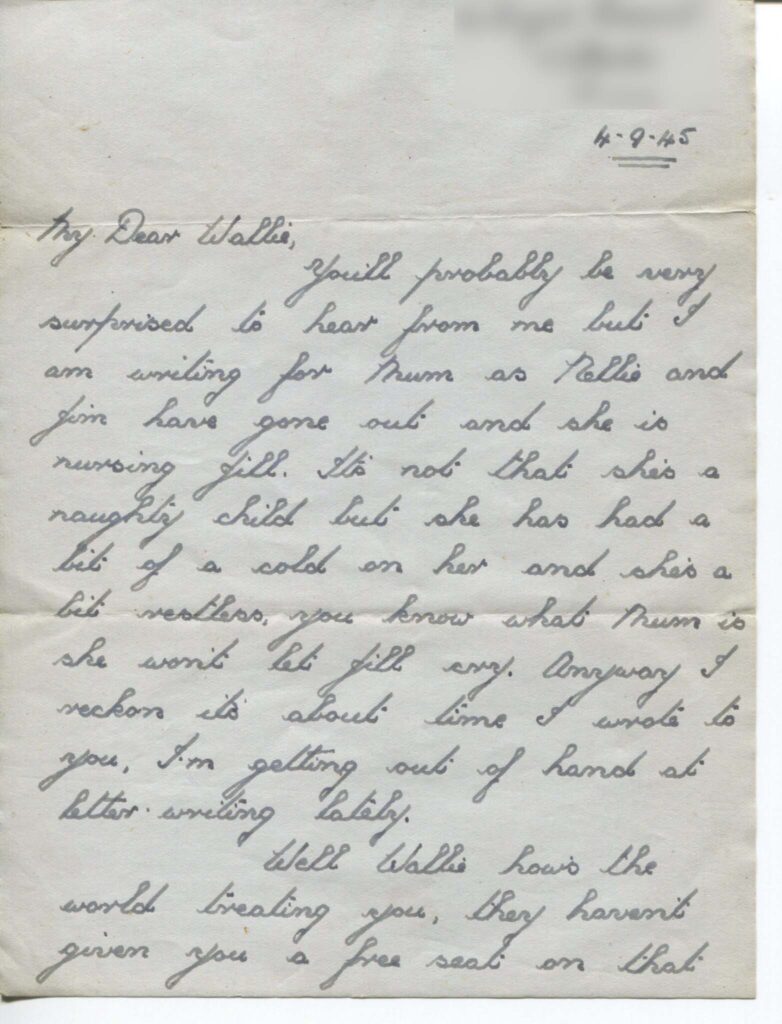 4-9-45
My Dear Wallie,
You'll probably be very
surprised to hear from me but I
am writing for Mum as Nellie and
Jim have gone out and she is
nursing Jill. It's not that she's a
naughty child but she has had a
bit of a cold on her and she's a
bit restless, you know what Mum is
she won't let Jill cry. Anyway I
reckon it's about time I wrote to
you, I'm getting out of hand at
letter-writing lately.
Well Wallie how's the
world treating you, they haven't
given you a free seat on that